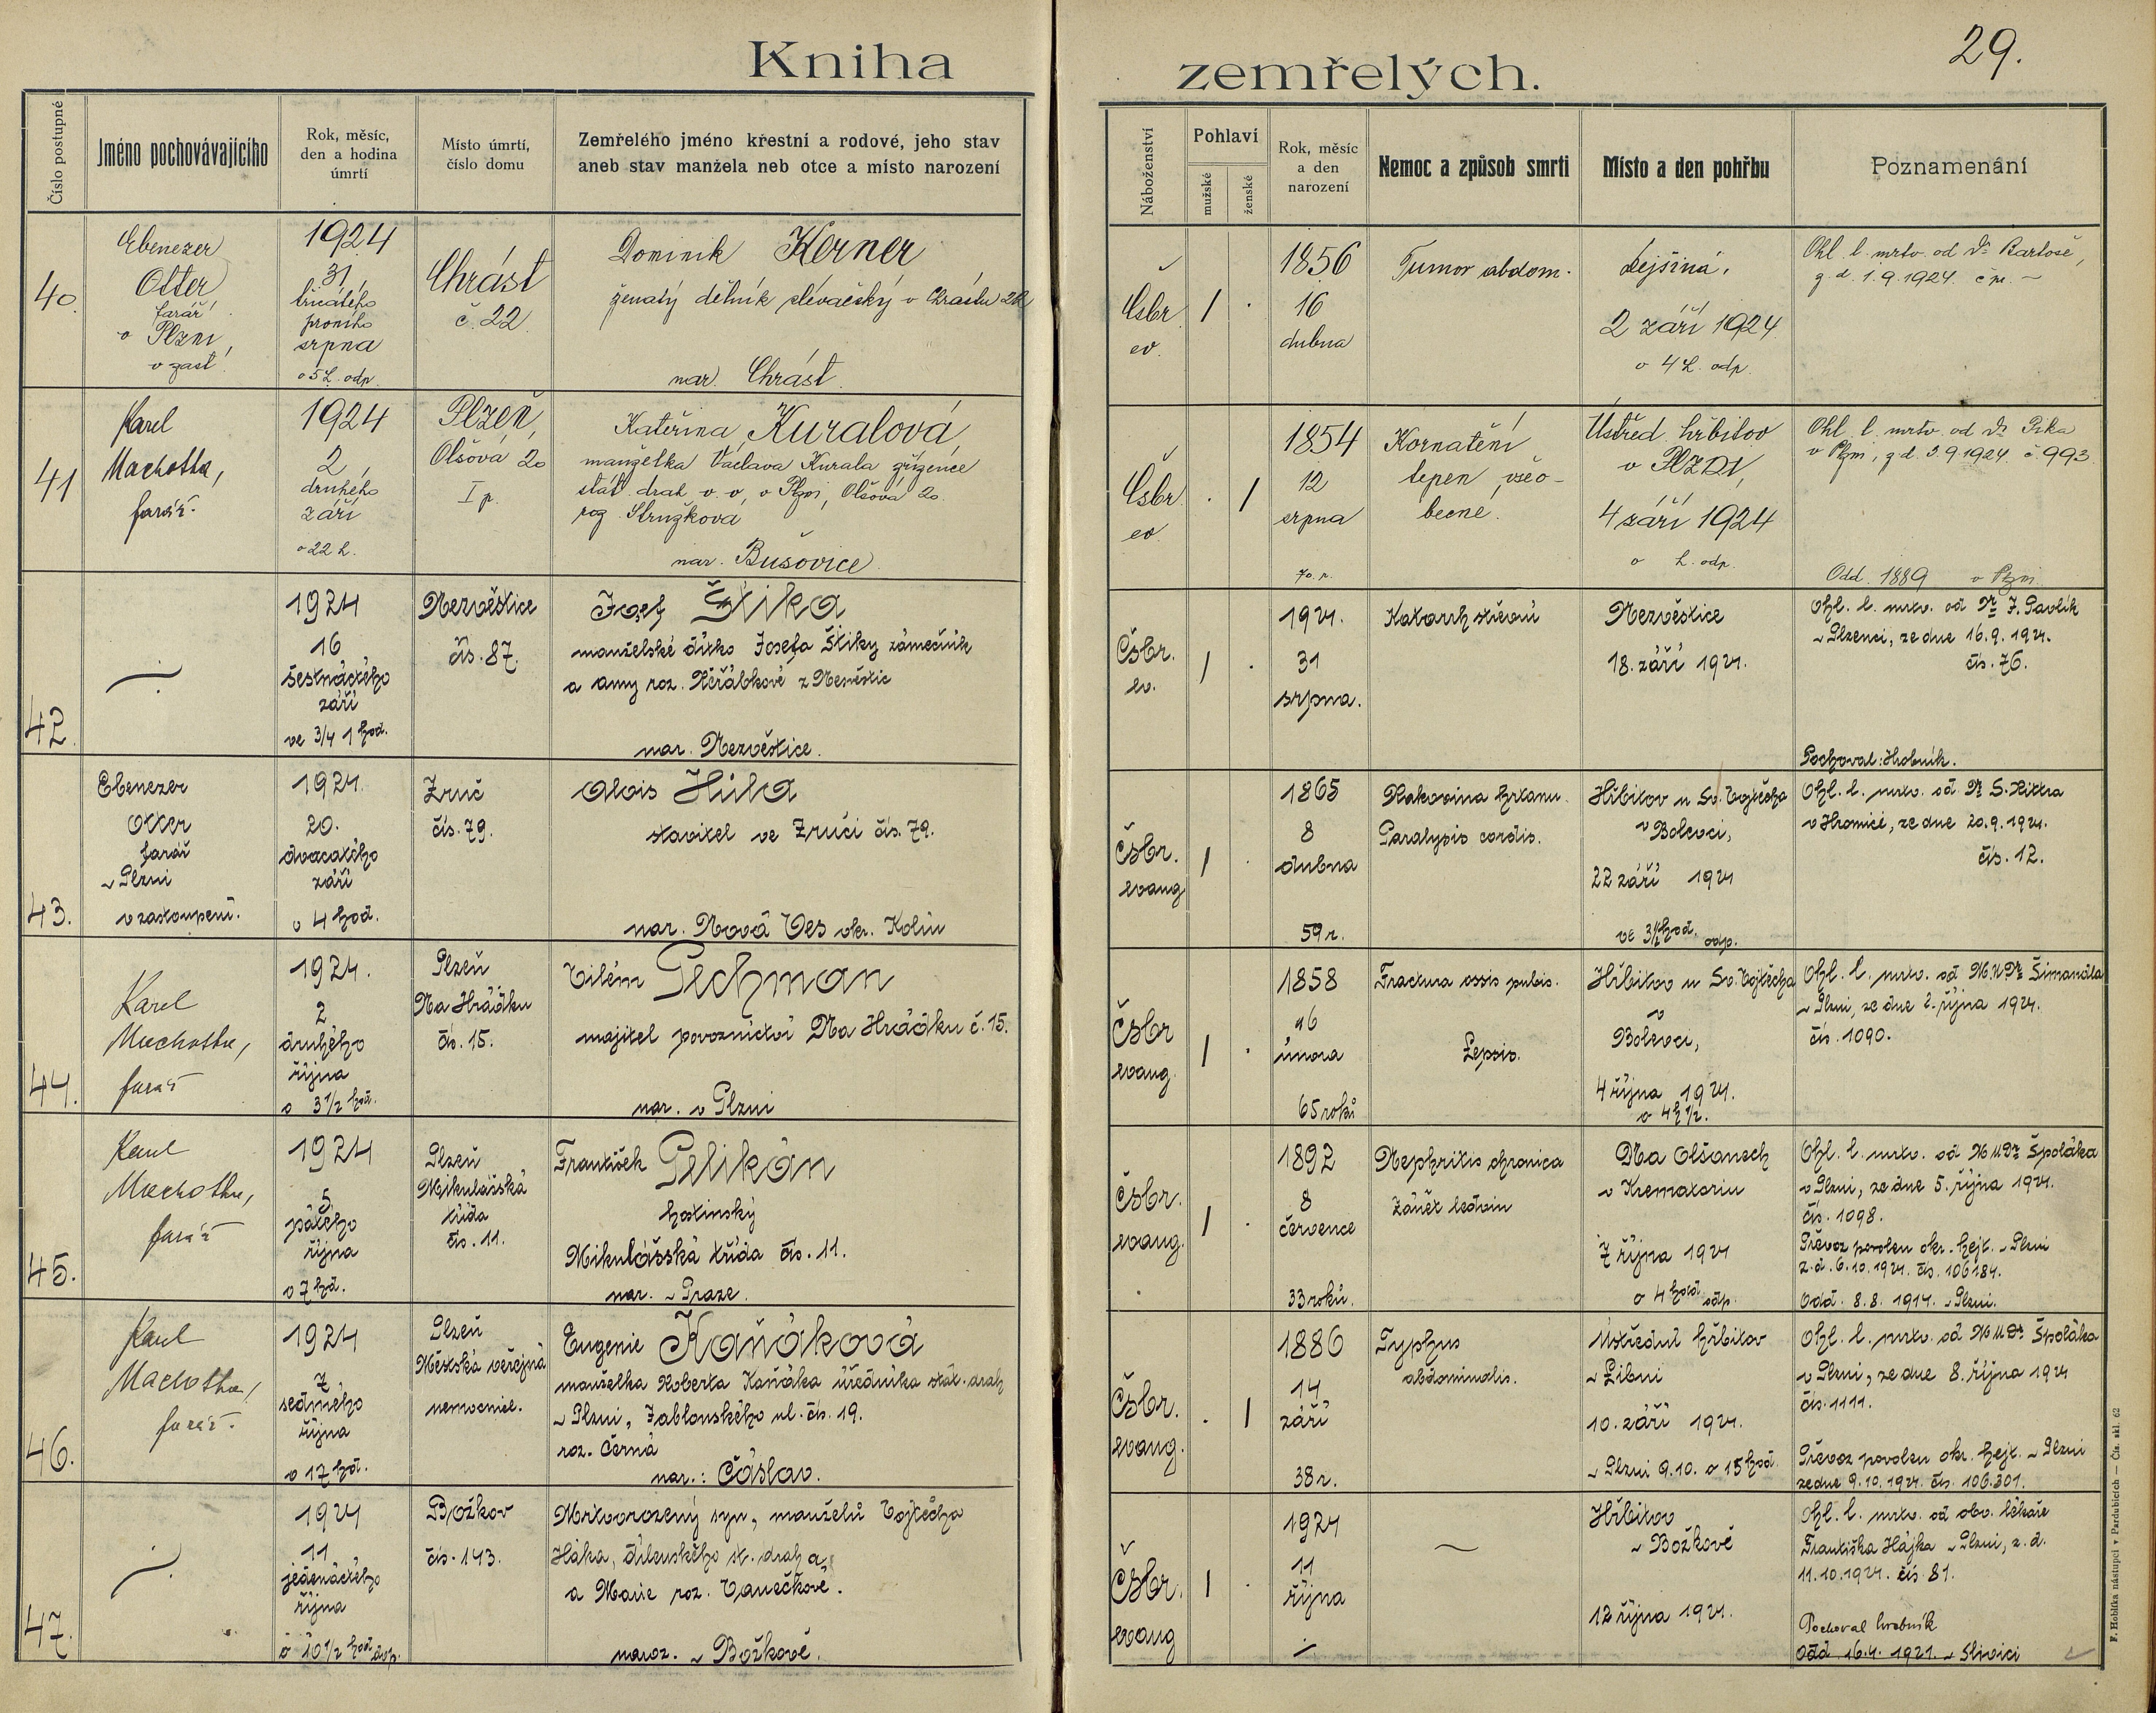 Kniha
zemřelých.
29.
Číslo postupné
Jméno pochovávajícího
Rok, měsíc,
den a hodina
úmrtí
Místo úmrtí,
číslo domu
Zemřelého jméno křestní a rodové, jeho stav
aneb stav manžela neb otce a místo narození
Náboženství
Pohlaví
mužské
ženské
Rok, měsíc
a den
narození
Nemoc a způsob smrti
Místo a den pohřbu
Poznamenání
40.
Ebenezer
Otter
farář
v Plzni,
v zast.
1924
31,
třicátého
prvního
srpna
o 5 h. odp.
Chrást
č. 22.
Dominik Kerner
ženatý dělník slévačský v Chrástu 22
nar. Chrást.
Čsbr.
ev.
1856
16
dubna
Tumor abdom.
Dejšina,
2 září 1924
o 4 h. odp.
Ohl. l. mrtv. od Dr Bartoše,
z d. 1.9.1924. čn. –
41
Karel
Machotka,
farář.
1924
2,
druhého
září
o 22 h.
Plzeň,
Olšová 20
I p.
Kateřina Kuralová
manželka Václava Kurala zřízence
stát. drah v. v., v Plzni, Olšová 20.
roz. Stružková
nar. Bušovice.
Čsbr.
ev.
1854
12
srpna
70. r.
Kornatění
tepen všeo-
becné.
Ústřed. hřbitov
v PLZNI,
4 září 1924
o h. odp.
Ohl. l. mrtv. od Dr Pika
v Plzni, z d. 3.9.1924. č 993.
Odd. 1889 v Plzni
42.
1924
16
šestnáctého
září
ve 3/4 1 hod.
Nezvěstice
čís. 87.
Josef Štika
manželské dítko Josefa Štiky zámečník
a Anny roz. Jeřábkové z Nezvěstic
nar. Nezvěstice.
Čsbr.
ev.
1924.
31
srpna.
Katarrh střevní
Nezvěstice
18. září 1924.
Ohl. l. mrtv. od Dr J. Pavlík
v Plzenci, ze dne 16.9.1924.
čís. 76.
Pochoval: Hrobník.
43.
Ebenezer
Otter
farář
v Plzni
v zastoupení.
1924.
20.
dvacátého
září
o 4 hod.
Zruč
čís. 79.
Alois Hůla
stavitel ve Zruči čís. 79.
nar. Nová Ves okr. Kolín
Čsbr.
evang.
1865
8
dubna
59 r.
Rakovina hrtanu.
Paralysis cordis.
Hřbitov u Sv. Vojtěcha
v Bolevci,
22 září 1924
ve 3 1/2 hod. odp.
Ohl. l. mrtv. od Dr S. Rittra
v Hromici, ze dne 20.9.1924.
čís. 12.
44.
Karel
Machotka,
farář
1924.
2
druhého
října
o 3 1/2 hod.
Plzeň
Na Hrádku
čís. 15.
Vilém Pechman
majitel povoznictví Na Hrádku č. 15.
nar. v Plzni
Čsbr
evang.
1858
26
února
65 roků
Fractura ossis pubis.
Sepsis.
Hřbitov u Sv. Vojtěcha
v
Bolevci,
4 října 1924.
o 4 h 1/2.
Ohl. l. mrtv. od MUDr Šimandla
v Plzni, ze dne 2. října 1924.
čís. 1090.
45.
Karel
Machotka,
farář
1924
5
pátého
října
o 7 hd.
Plzeň
Mikulášská
třída
čís. 11.
František Pelikán
hostinský
Mikulášská třída čís. 11.
nar. v Praze.
Čsbr.
evang.
1892
8
července
33 roků.
Nephritis chronica
Zánět ledvin
Na Olšanech
v Krematoriu
7 října 1924
o 4 hod. odp.
Ohl. l. mrtv. od MUDr Špoláka
v Plzni, ze dne 5. října 1924.
čís. 1098.
Převoz povolen okr. hejt. v Plzni
z d. 6.10.1924. čís. 106184.
Odd. 8.8. 1914. v Plzni.
46.
Karel
Machotka,
farář.
1924
7
sedmého
října
o 17 hd.
Plzeň
Městská veřejná
nemocnice.
Eugenie Kaňáková
manželka Roberta Kaňáka úředníka stát. drah
v Plzni, Jablonského ul. čís. 19.
roz. Černá
nar.: Čáslav.
Čsbr.
evang.
1886
14
září
38 r.
Typhus
abdominalis.
Ústřední hřbitov
v Libni
10. září 1924.
v Plzni 9.10. o 15 hod.
Ohl. l. mrtv. od MUDr Špoláka
v Plzni, ze dne 8. října 1924
čís. 1111.
Převoz povolen okr. hejt. v Plzni
ze dne 9.10.1924. čís. 106.301.
47.
1924
11
jedenáctého
října
o 10 1/2 hod. dop.
Božkov
čís. 143.
Mrtvorozený syn, manželů Vojtěcha
Háka, dílenského st. drah a,
a Marie roz. Vanečkové.
naroz. v Božkově.
Čsbr.
evang
1924
11
října
Hřbitov
v Božkově
12 října 1924.
Ohl. l. mrtv. od obv. lékaře
Františka Hájka v Plzni, z. d.
11.10.1924. čís. 81.
Pochoval hrobník
Odd. 16.4. 1921. v Slivici
F. Hoblíka nástupci v Pardubicích — Čís. skl. 62